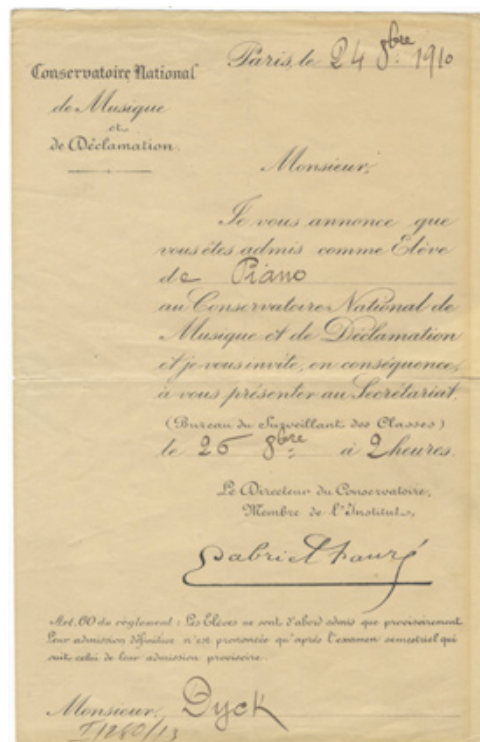 Conservatoire National
de Musique
et
de Déclamation.
Paris, le 24 8bre 1910
Monsieur,
Je vous annonce que
vous êtes admis comme Elève
de Piano
au Conservatoire National de
Musique et de Déclamation
et je vous invite, en conséquence,
à vous présenter au Secrétariat,
(Bureau du Surveillant des Classes)
le 26 8bre à 2 heures.
Le Directeur du Conservatoire,
Membre de l'Institut,
Gabriel Fauré
Art. 60 du règlement : Les Elèves ne sont d'abord admis que provisoirement.
Leur admission définitive n'est prononcée qu'après l'examen semestriel qui
suit celui de leur admission provisoire.
Monsieur Dyck
I1280/13